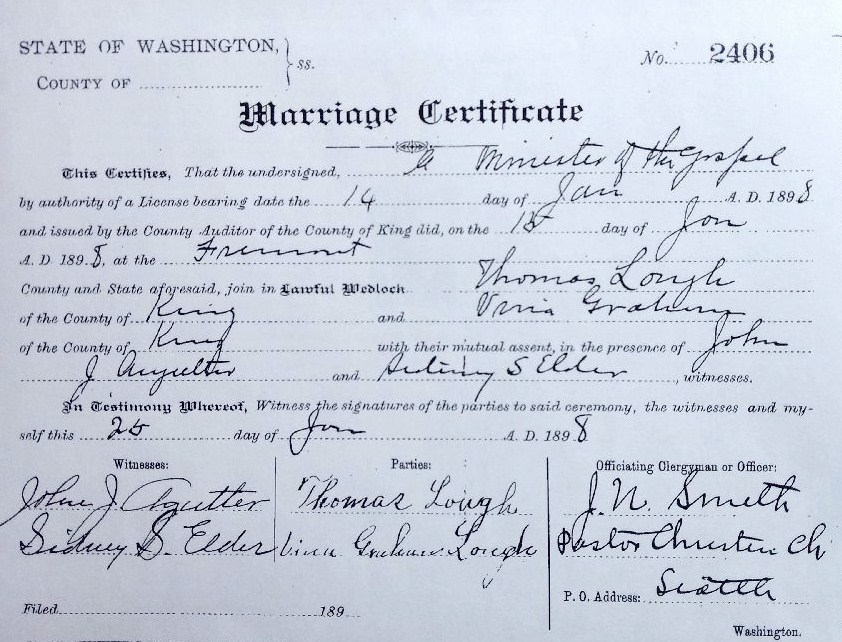 STATE OF WASHINGTON, } ss.
No. 2406
COUNTY OF
Marriage Certificate
This Certifies, That the undersigned, a Minister of the Gospel
by authority of a License bearing date the 14 day of Jan A. D. 1898
and issued by the County Auditor of the County of King did, on the day of Jan
A. D 1898, at the Fremont
County and State aforesaid, join in Lawful Wedlock Thomas Lough
of the County of King and Vina Graham
of the County of King with their mutual assent, in the presence of John
J Agutter and Sidney S Elder, witnesses.
In Testimony Whereof, Witness the signatures of the parties to said ceremony, the witnesses and my-
self this 25 day of Jan A. D. 1898
Witnesses: Parties: Officiating Clergyman or Officer:
John J. Agutter Thomas Lough J. N. Smith
Sidney S. Elder Vina Graham Lough Pastor Christen Ch
P. O. Address: Seattle
Filed 189
Washington.